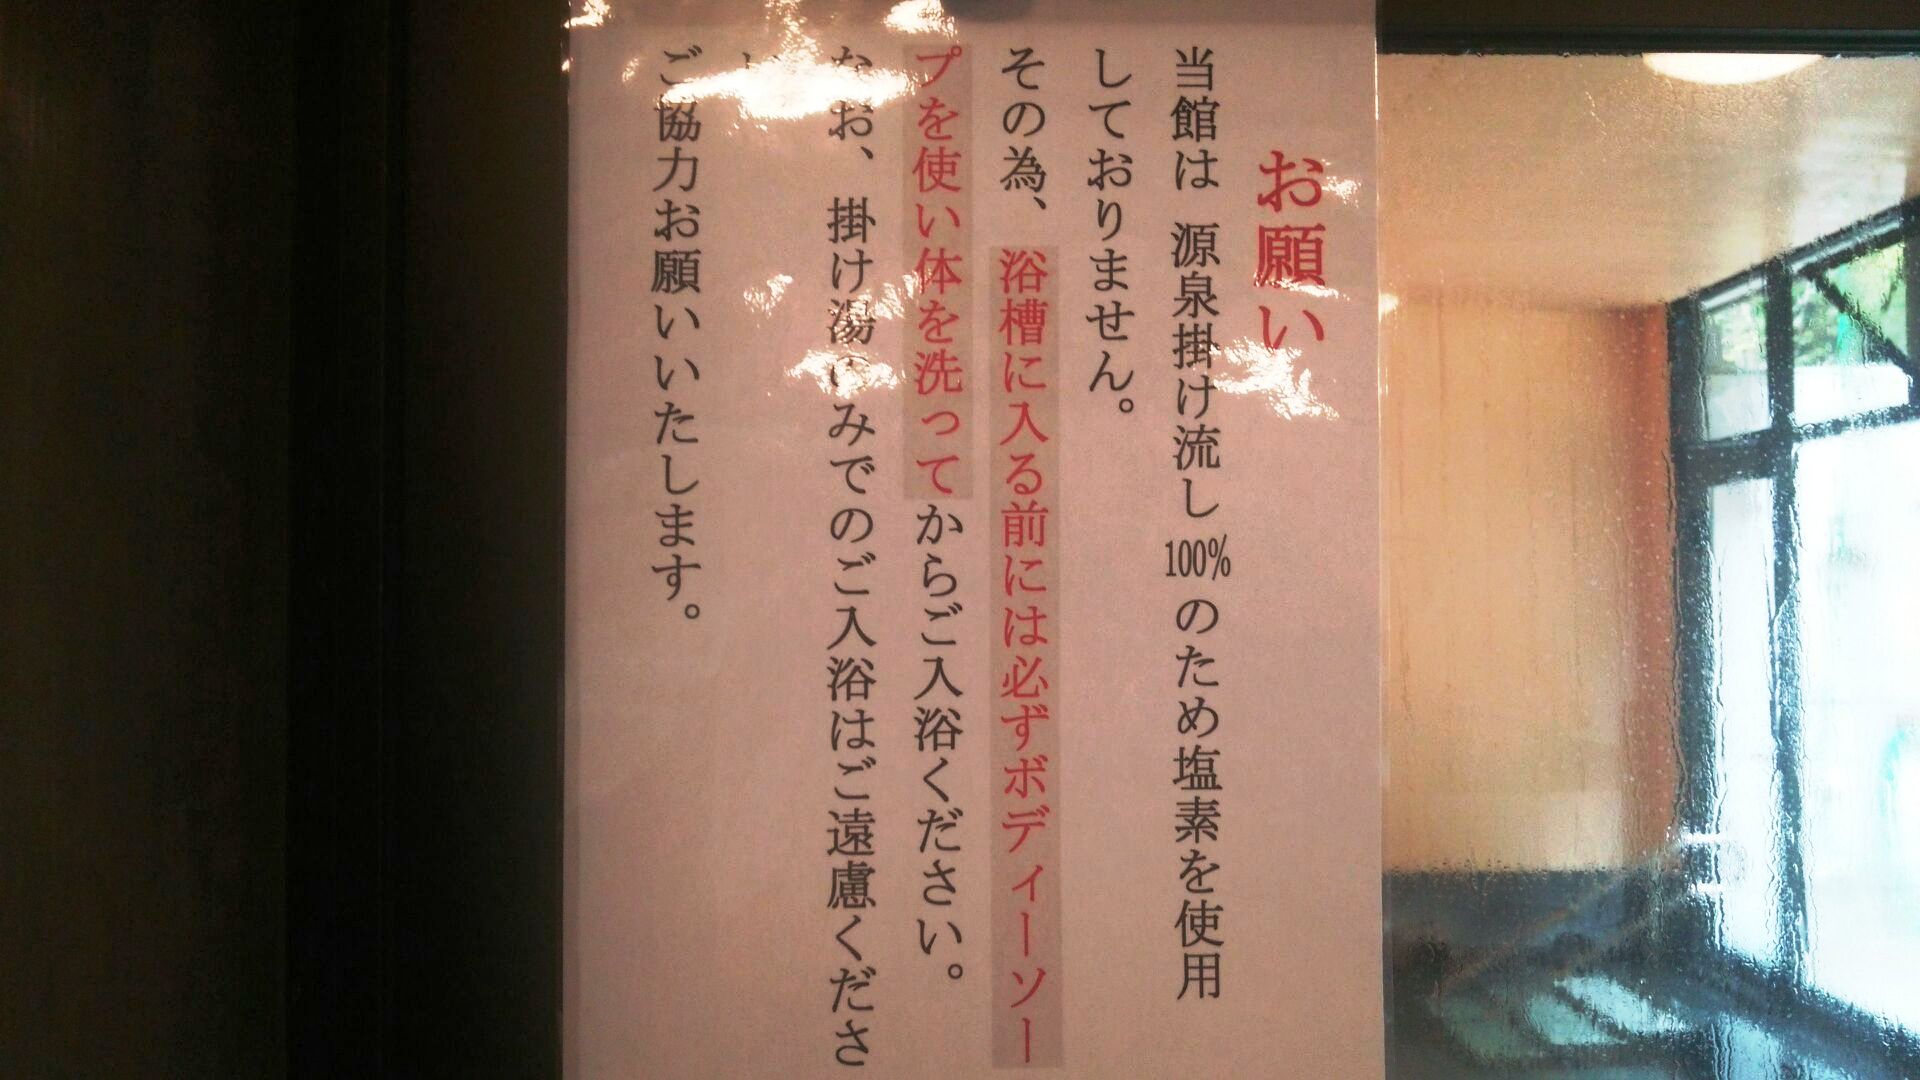 お願い
当館は 源泉掛け流し 100% のため塩素を使用
しておりません。
その為、浴槽に入る前には必ずボディーソー
プを使い体を洗ってからご入浴ください。
なお、掛け湯のみでのご入浴はご遠慮くださ
い
ご協力お願いいたします。